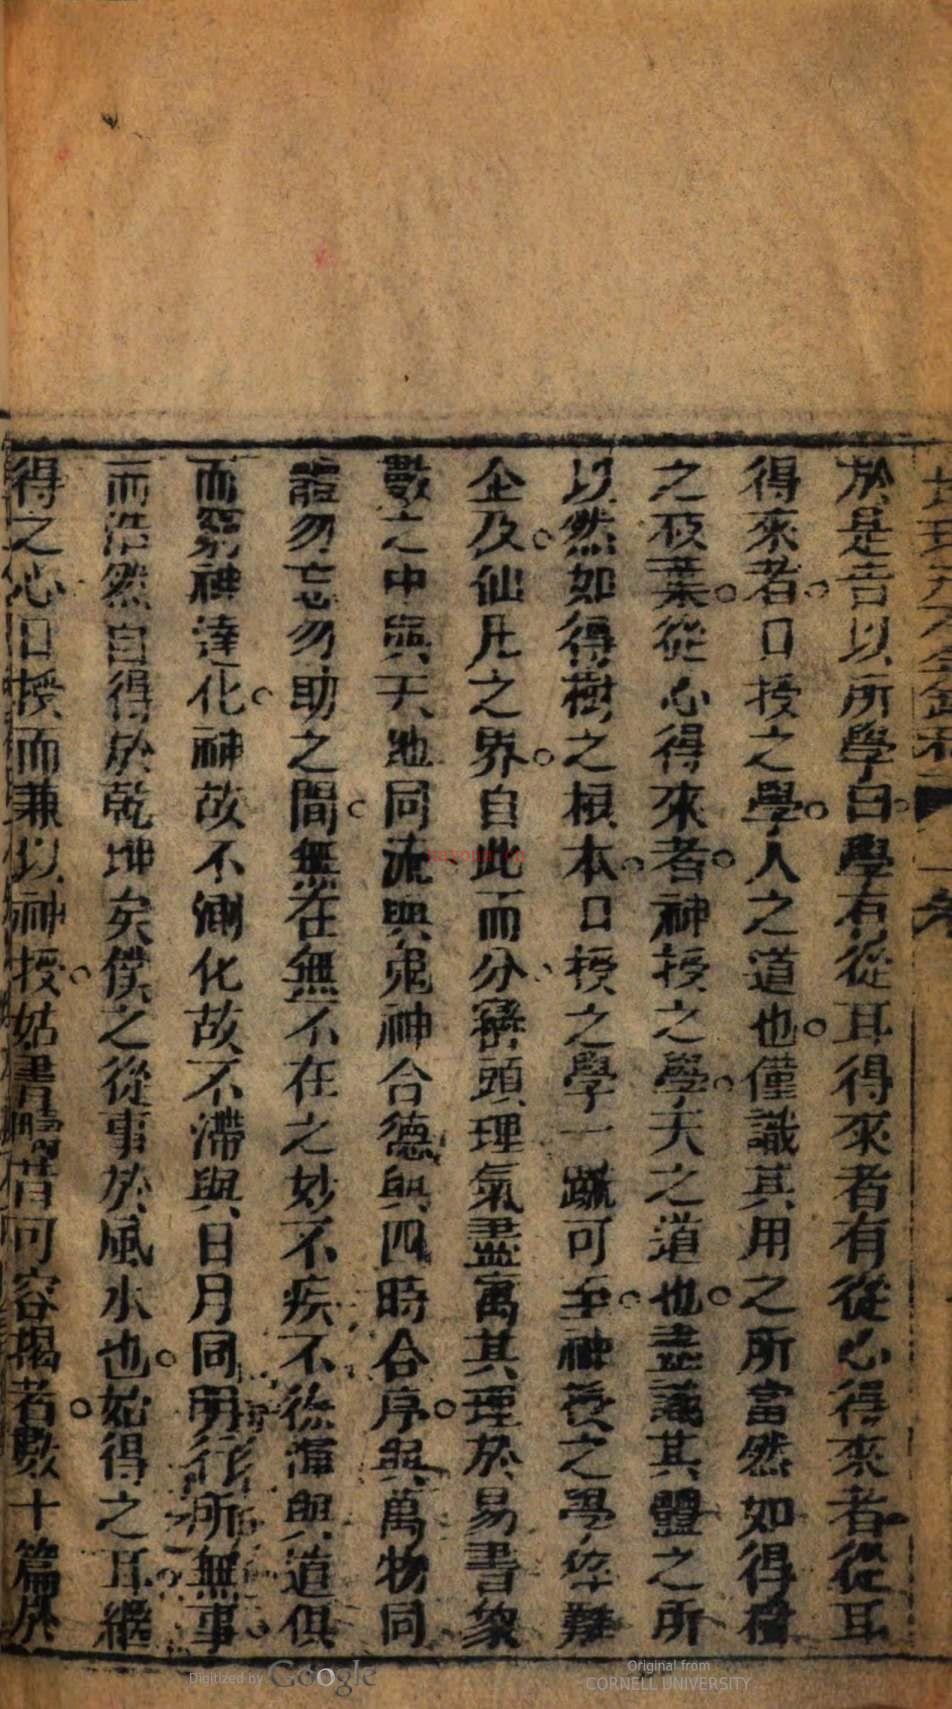 於是告以所學曰學有從耳得來者有從心得來者從耳
得來者口授之學人之道也僅識其用之所當然如得樹
之枝葉從心得來者神授之學天之道也盡識其體之所
以然如得樹之根本口授之學一蹴可至神授之學卒難
企及仙凡之界自此而分竊頭理氣盡寓其理於易書象
數之中與天地同流與鬼神合德與四時合序與萬物同
體勿忘勿助之間無在無不在之妙不疾不徐渾與道俱
而窮神達化神故不測化故不滯與日月同明行所無事
而浩然自得於乾坤矣僕之從事於風水也始得之耳繼
得之心口授而兼以神授姑書曩昔可容揭者數十篇於
Digitized by Google
Original from
CORNELL UNIVERSITY